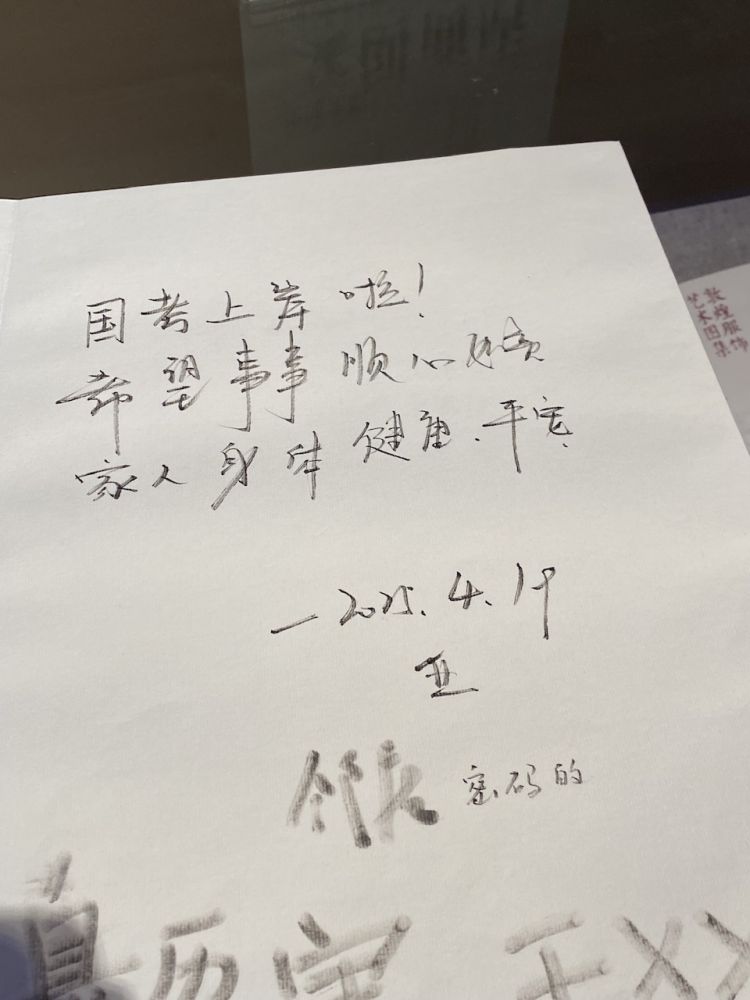 国考上岸啦!
希望事事顺心
家人身体健康、平安
—2025.4.19
亚
密码的
敦煌服饰
艺术图集